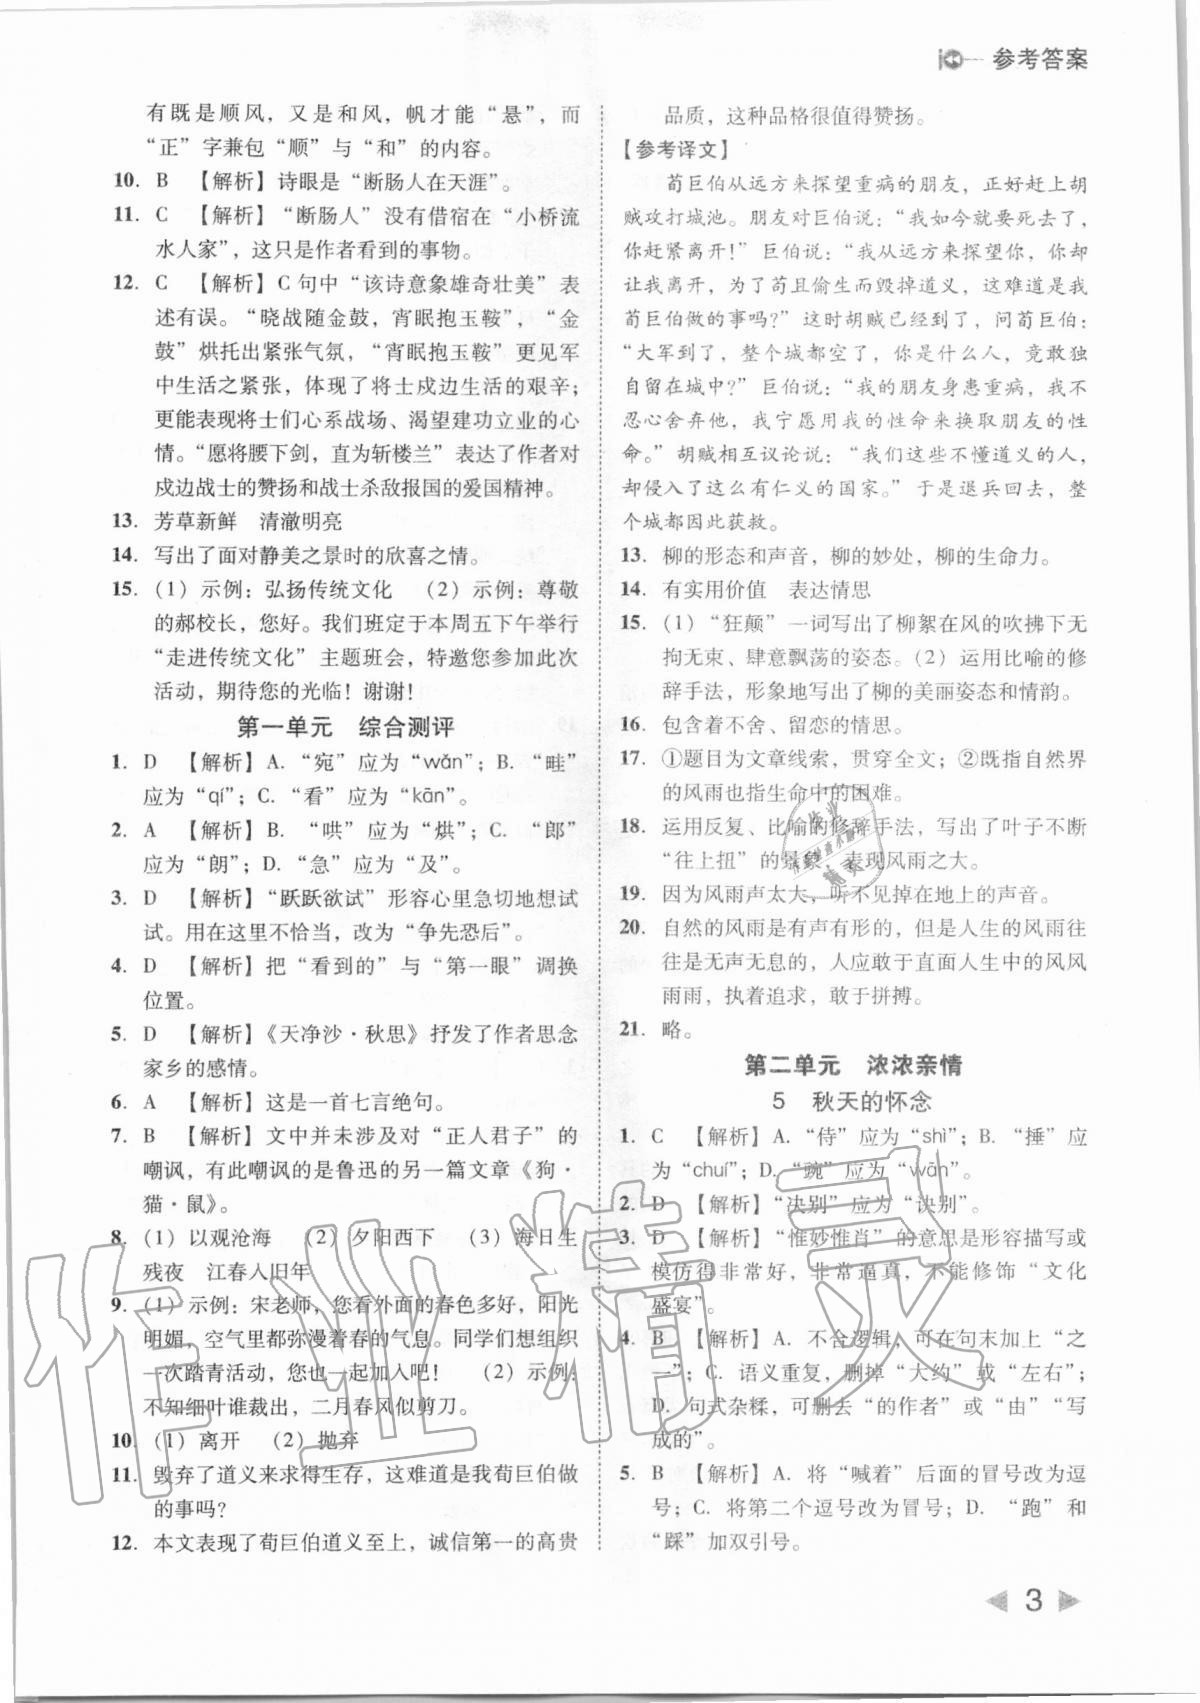 参考答案
有既是顺风，又是和风，帆才能“悬”，而
“正”字兼包“顺”与“和”的内容。
10. B 【解析】诗眼是“断肠人在天涯”。
11. C 【解析】“断肠人”没有借宿在“小桥流
水人家”，这只是作者看到的事物。
12. C 【解析】C句中“该诗意象雄奇壮美”表
述有误。“晓战随金鼓，宵眠抱玉鞍”，“金
鼓”烘托出紧张气氛，“宵眠抱玉鞍”更见军
中生活之紧张，体现了将士戍边生活的艰辛；
更能表现将士们心系战场、渴望建功立业的心
情。“愿将腰下剑，直为斩楼兰”表达了作者对
戍边战士的赞扬和战士杀敌报国的爱国精神。
13. 芳草新鲜 清澈明亮
14. 写出了面对静美之景时的欣喜之情。
15. (1) 示例：弘扬传统文化 (2) 示例：尊敬
的郝校长，您好。我们班定于本周五下午举行
“走进传统文化”主题班会，特邀您参加此次
活动，期待您的光临！谢谢！
第一单元 综合测评
1. D 【解析】A. “宛”应为“wǎn”；B. “畦”
应为“qí”；C. “看”应为“kān”。
2. A 【解析】B. “哄”应为“烘”；C. “郎”
应为“朗”；D. “急”应为“及”。
3. D 【解析】“跃跃欲试”形容心里急切地想试
试。用在这里不恰当，改为“争先恐后”。
4. D 【解析】把“看到的”与“第一眼”调换
位置。
5. D 【解析】《天净沙·秋思》抒发了作者思念
家乡的感情。
6. A 【解析】这是一首七言绝句。
7. B 【解析】文中并未涉及对“正人君子”的
嘲讽，有此嘲讽的是鲁迅的另一篇文章《狗·
猫·鼠》。
8. (1) 以观沧海 (2) 夕阳西下 (3) 海日生
残夜 江春入旧年
9. (1) 示例：宋老师，您看外面的春色多好，阳光
明媚，空气里都弥漫着春的气息。同学们想组织
一次踏青活动，您也一起加入吧！ (2) 示例：
不知细叶谁裁出，二月春风似剪刀。
10. (1) 离开 (2) 抛弃
11. 毁弃了道义来求得生存，这难道是我荀巨伯做
的事吗？
12. 本文表现了荀巨伯道义至上，诚信第一的高贵
品质，这种品格很值得赞扬。
【参考译文】
荀巨伯从远方来探望重病的朋友，正好赶上胡
贼攻打城池。朋友对巨伯说：“我如今就要死去了，
你赶紧离开！”巨伯说：“我从远方来探望你，你却
让我离开，为了苟且偷生而毁掉道义，这难道是我
荀巨伯做的事吗？”这时胡贼已经到了，问荀巨伯：
“大军到了，整个城都空了，你是什么人，竟敢独
自留在城中？”巨伯说：“我的朋友身患重病，我不
忍心舍弃他，我宁愿用我的性命来换取朋友的性
命。”胡贼相互议论说：“我们这些不懂道义的人，
却侵入了这么有仁义的国家。”于是退兵回去，整
个城都因此获救。
13. 柳的形态和声音，柳的妙处，柳的生命力。
14. 有实用价值 表达情思
15. (1) “狂颠”一词写出了柳絮在风的吹拂下无
拘无束、肆意飘荡的姿态。(2) 运用比喻的修
辞手法，形象地写出了柳的美丽姿态和情韵。
16. 包含着不舍、留恋的情思。
17. ①题目为文章线索，贯穿全文；②既指自然界
的风雨也指生命中的困难。
18. 运用反复、比喻的修辞手法，写出了叶子不断
“往上扭”的景象，表现风雨之大。
19. 因为风雨声太大，听不见掉在地上的声音。
20. 自然的风雨是有声有形的，但是人生的风雨往
往是无声无息的，人应敢于直面人生中的风风
雨雨，执着追求，敢于拼搏。
21. 略。
第二单元 浓浓亲情
5 秋天的怀念
1. C 【解析】A. “侍”应为“shì”；B. “捶”应
为“chuí”；D. “豌”应为“wān”。
2. D 【解析】“决别”应为“诀别”。
3. D 【解析】“惟妙惟肖”的意思是形容描写或
模仿得非常好，非常逼真，不能修饰“文化
盛宴”。
4. B 【解析】A. 不合逻辑，可在句末加上“之
一”；C. 语义重复，删掉“大约”或“左右”；
D. 句式杂糅，可删去“的作者”或“由”“写
成的”。
5. B 【解析】A. 将“喊着”后面的冒号改为逗
号；C. 将第二个逗号改为冒号；D. “跑”和
“踩”加双引号。
作业精灵
3